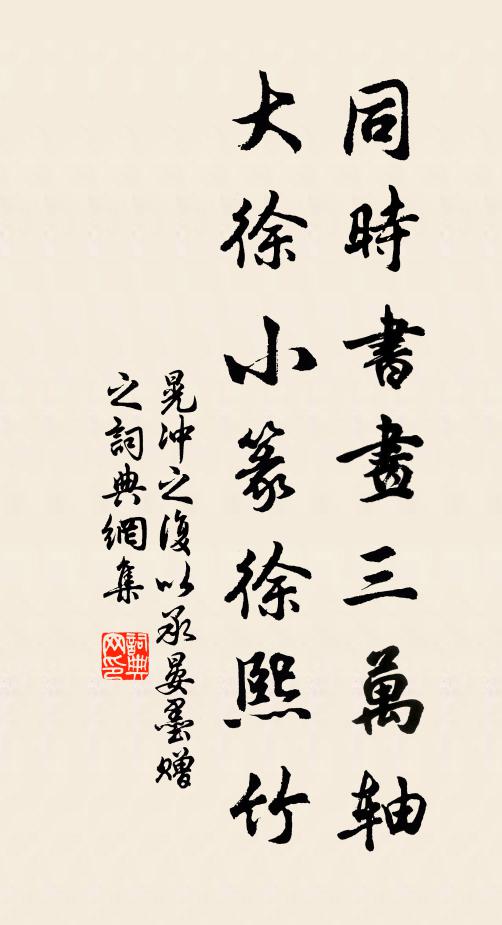 同時書畫三萬軸
大徐小篆徐熙竹
晁冲之復以承晏墨贈
之詞典網集
詞典網印